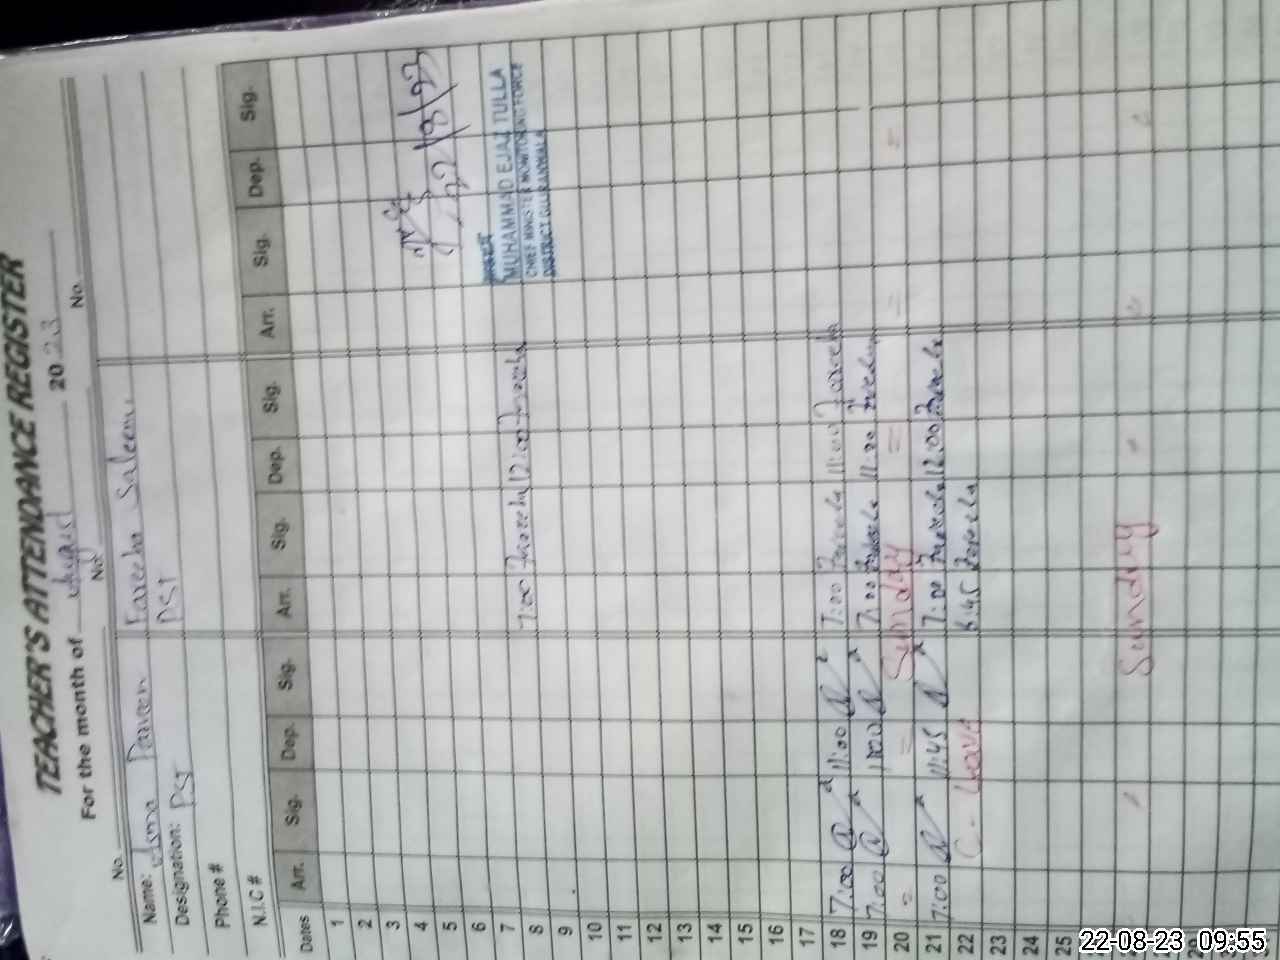 TEACHER'S ATTENDANCE REGISTER
For the month of August 2023
No. No. No.
Name: Asma Parveen Fareeha Saleem
Designation: PST PST
Phone #
N.I.C #
Dates Arr. Sig. Dep. Sig. Arr. Sig. Dep. Sig. Arr. Sig. Dep. Sig.
1
2
3
4
5 22/8/23
6
7 MUHAMMAD EJAZ TULLA
CHIEF MINISTER MONITORING FORCE
8 7:00 Fareeha 12:00 Fareeha DISTRICT GUJRANWALA
9
10
11
12
13
14
15
16
17
18 7:00 11:00 7:00 Fareeha 11:00 Fareeha
19 7:00 11:00 7:00 Fareeha 11:00 Fareeha
20 = = Sunday = = =
21 7:00 11:45 7:00 Fareeha 12:00 Fareeha
22 C. Leave 6:45 Fareeha
23
24
25
Sunday
29
30
22-08-23 09:55